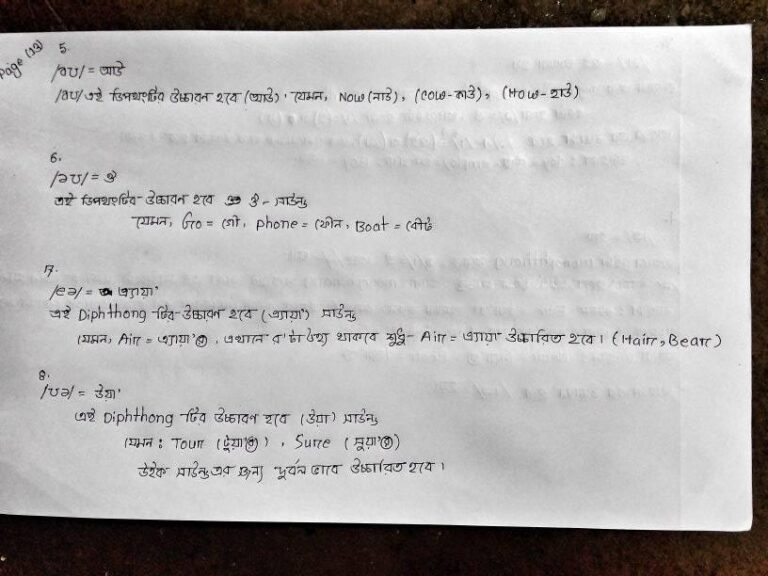 Page (13)
5.
/aʊ/ = আউ
/aʊ/ এই ডিপথংটির উচ্চারন হবে (আউ)। যেমন, Now (নাউ), (Cow-কাউ), (How-হাউ)
6.
/əʊ/ = ঔ
এই ডিপথংটির উচ্চারন হবে ঔ - সাউন্ড
যেমন, Go = গৌ, Phone = ফৌন, Boat = বৌট
7.
/eə/ = এ্যায়া'
এই Diphthong টির উচ্চারন হবে (এ্যায়া') সাউন্ড
যেমন, Air = এ্যায়া'(র), এখানে র' টা উহ্য থাকবে শুধু- Air = এ্যায়া' উচ্চারিত হবে। (Hair, Bear)
8.
/ʊə/ = উয়া'
এই Diphthong টির উচ্চারণ হবে (উয়া) সাউন্ড
যেমন: Tour (টুয়া'(র)), Sure (সুয়া'(র))
উইক সাউন্ড এর জন্য দূর্বল ভাবে উচ্চারিত হবে।